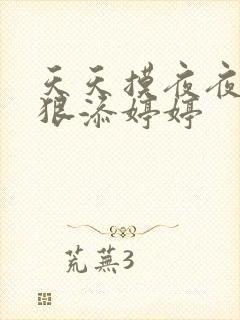 天天摸夜夜
狠添婷婷
荒蕪3